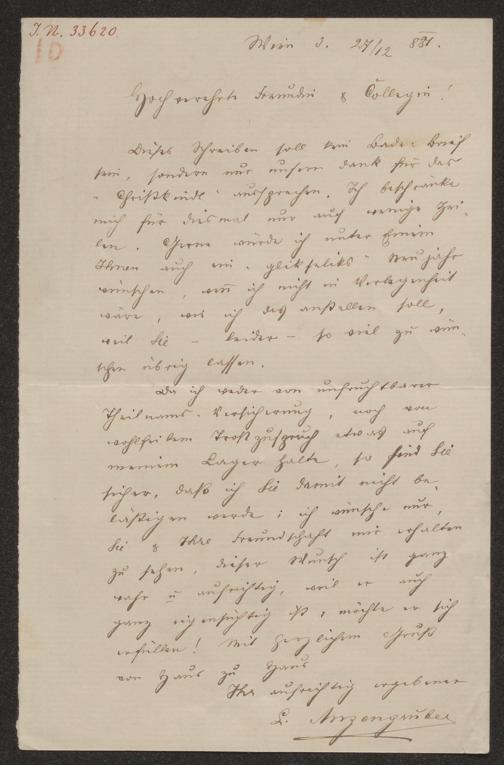 J. N. 33620.
10
Wien d. 27/12 881.
Hochverehrte Freundin & Collegin!
Dieses Schreiben soll kein Bade-Brief
sein, sondern nur unsern Dank für das
"Christkindl" aussprechen. Ich beschränke
mich für diesmal nur auf wenige Zei-
len. Gerne würde ich unter Einem
Ihnen auch ein "glükseliks" Neujahr
wünschen, wenn ich nicht in Verlegenheit
wäre, wie ich das anstellen soll,
weil Sie - leider - so viel zu wün-
schen übrig lassen.
Da ich weder von unfruchtbarer
Theilnams-Versicherung, noch von
wohlfeilem Trostzuspruch etwas auf
meinem Lager halte, so sind Sie
sicher, daß ich Sie damit nicht be-
lästigen werde; ich wünsche nur,
Sie & Ihre Freundschaft mir erhalten
zu sehen, dieser Wunsch ist ganz
wahr u aufrichtig, weil er auch
ganz eigensüchtig ist, möchte er sich
erfüllen! Mit herzlichem Gruß
von Haus zu Haus
Ihr aufrichtig ergebener
L. Anzengruber